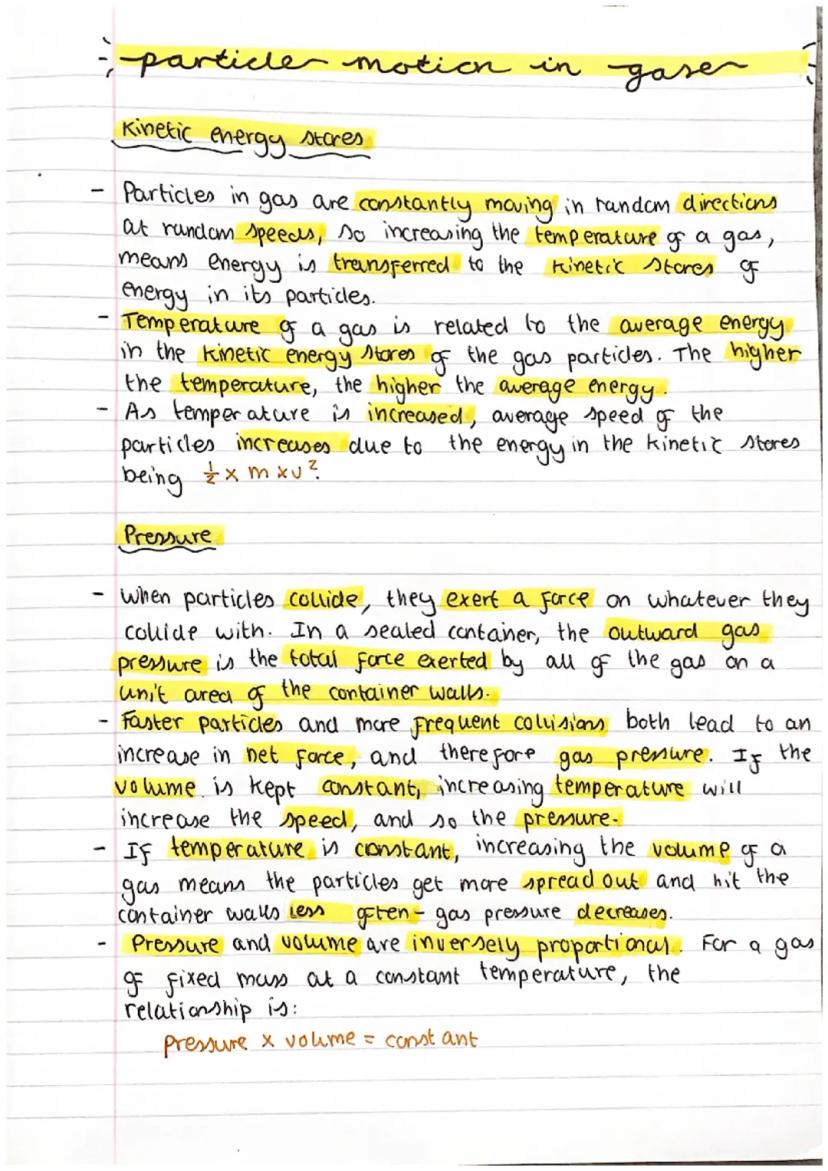 particle motion in gases
Kinetic energy stores
- Particles in gas are constantly moving in random directions
at random speeds, so increasing the temperature of a gas,
means energy is transferred to the kinetic stores of
energy in its particles.
- Temperature of a gas is related to the average energy
in the kinetic energy stores of the gas particles. The higher
the temperature, the higher the average energy.
- As temperature is increased, average speed of the
particles increases due to the energy in the kinetic stores
being ½ x m x v².
Pressure
- When particles collide, they exert a force on whatever they
collide with. In a sealed container, the outward gas
pressure is the total force exerted by all of the gas on a
unit area of the container walls.
- Faster particles and more frequent collisions both lead to an
increase in net force, and therefore gas pressure. If the
volume is kept constant, increasing temperature will
increase the speed, and so the pressure.
- If temperature is constant, increasing the volume of a
gas means the particles get more spread out and hit the
container walls less often - gas pressure decreases.
- Pressure and volume are inversely proportional. For a gas
of fixed mass at a constant temperature, the
relationship is:
pressure x volume = constant